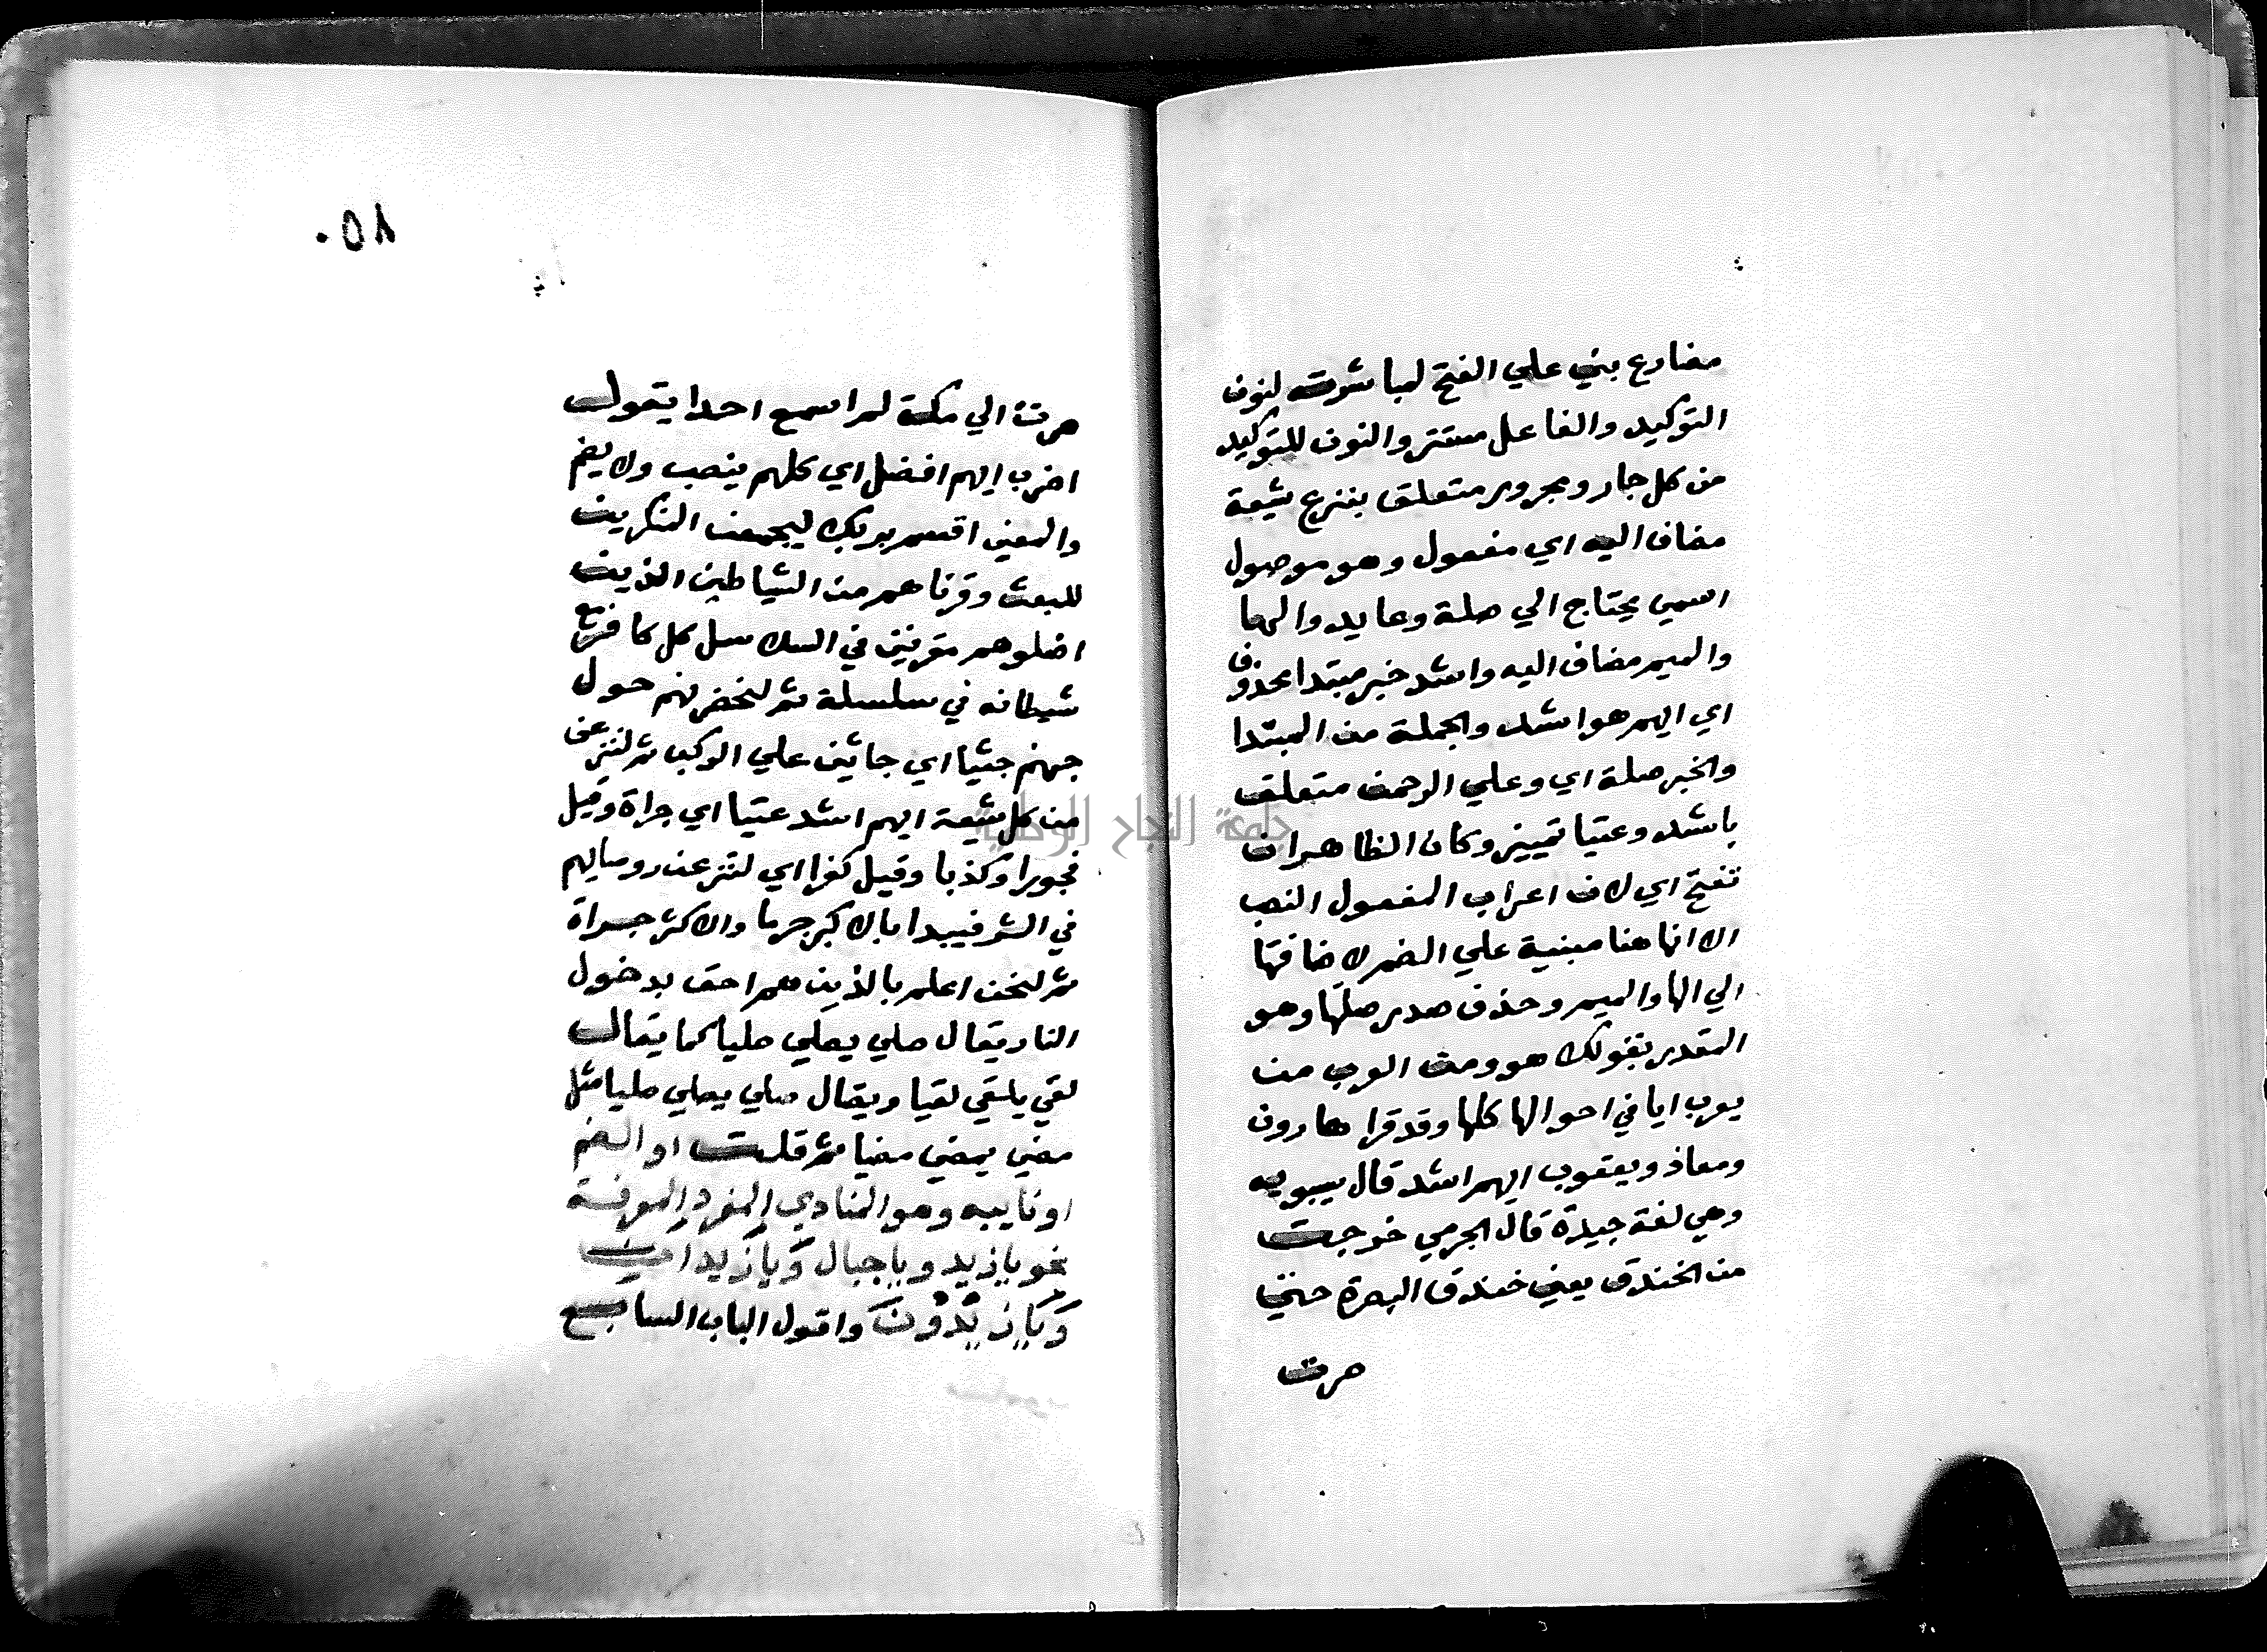 مضارع بني علي الفتح لمباشرته لنون
التوكيد والفاعل مستتر والنون للتوكيد
من كل جار ومجرور متعلق بننزع شيعة
مضاف اليه اي مفعول وهو موصول
اسمي يحتاج الي صلة وعايد والها
والميم مضاف اليه واشد خبر مبتدا محذوف
اي ايهم هو اشد والجملة من المبتدا
والخبر صلة اي وعلي الرحمن متعلق
باشد وعتيا تمييز وكان الظاهر ان
تفتح اي لان اعراب المفعول النصب
الا انها هنا مبنية علي الضم لاضافتها
الي الها والميم وحذف صدر صلتها وهو
المقدر بقولك هو ومن العرب من
يعرب ايا في احوالها كلها وقد قرا هارون
ومعاذ ويعقوب ايهم اشد قال سيبويه
وهي لغة جيدة قال الجرمي خرجت
من الخندق يعني خندق البصرة حتي
صرت
٠٥٨
صرت الي مكة لم اسمع احدا يقول
اضرب ايهم افضل اي كلهم ينصب ولا يضم
والمعني اقسم بربك ليجمعن المنكرين
للبعث وقرناهم من الشياطين الذين
اضلوهم مقرنين في السلاسل كل كافر مع
شيطانه في سلسلة ثم لنحضرنهم حول
جهنم جثيا اي جاثين علي الركب ثم لننزعن
من كل شيعة ايهم اشد عتيا اي جراة وقيل
فجورا وكذبا وقيل كفرا اي لننزعن روسايهم
في الشر فيبدا بالاكبر جرما والاكثر جراة
ثم لنحن اعلم بالذين هم احق بدخول
النار يقال صلي يصلي صليا كما يقال
لقي يلقي لقيا ويقال صلي يصلي صليا مثل
مضي يمضي مضيا ثم قلت او الضم
او نايبه وهو المنادي المفرد المعرفة
نحو يا زيد ويا جبال ويا زيدان
ويا زيدون واقول الباب السابع
جامعة النجاح الوطنية